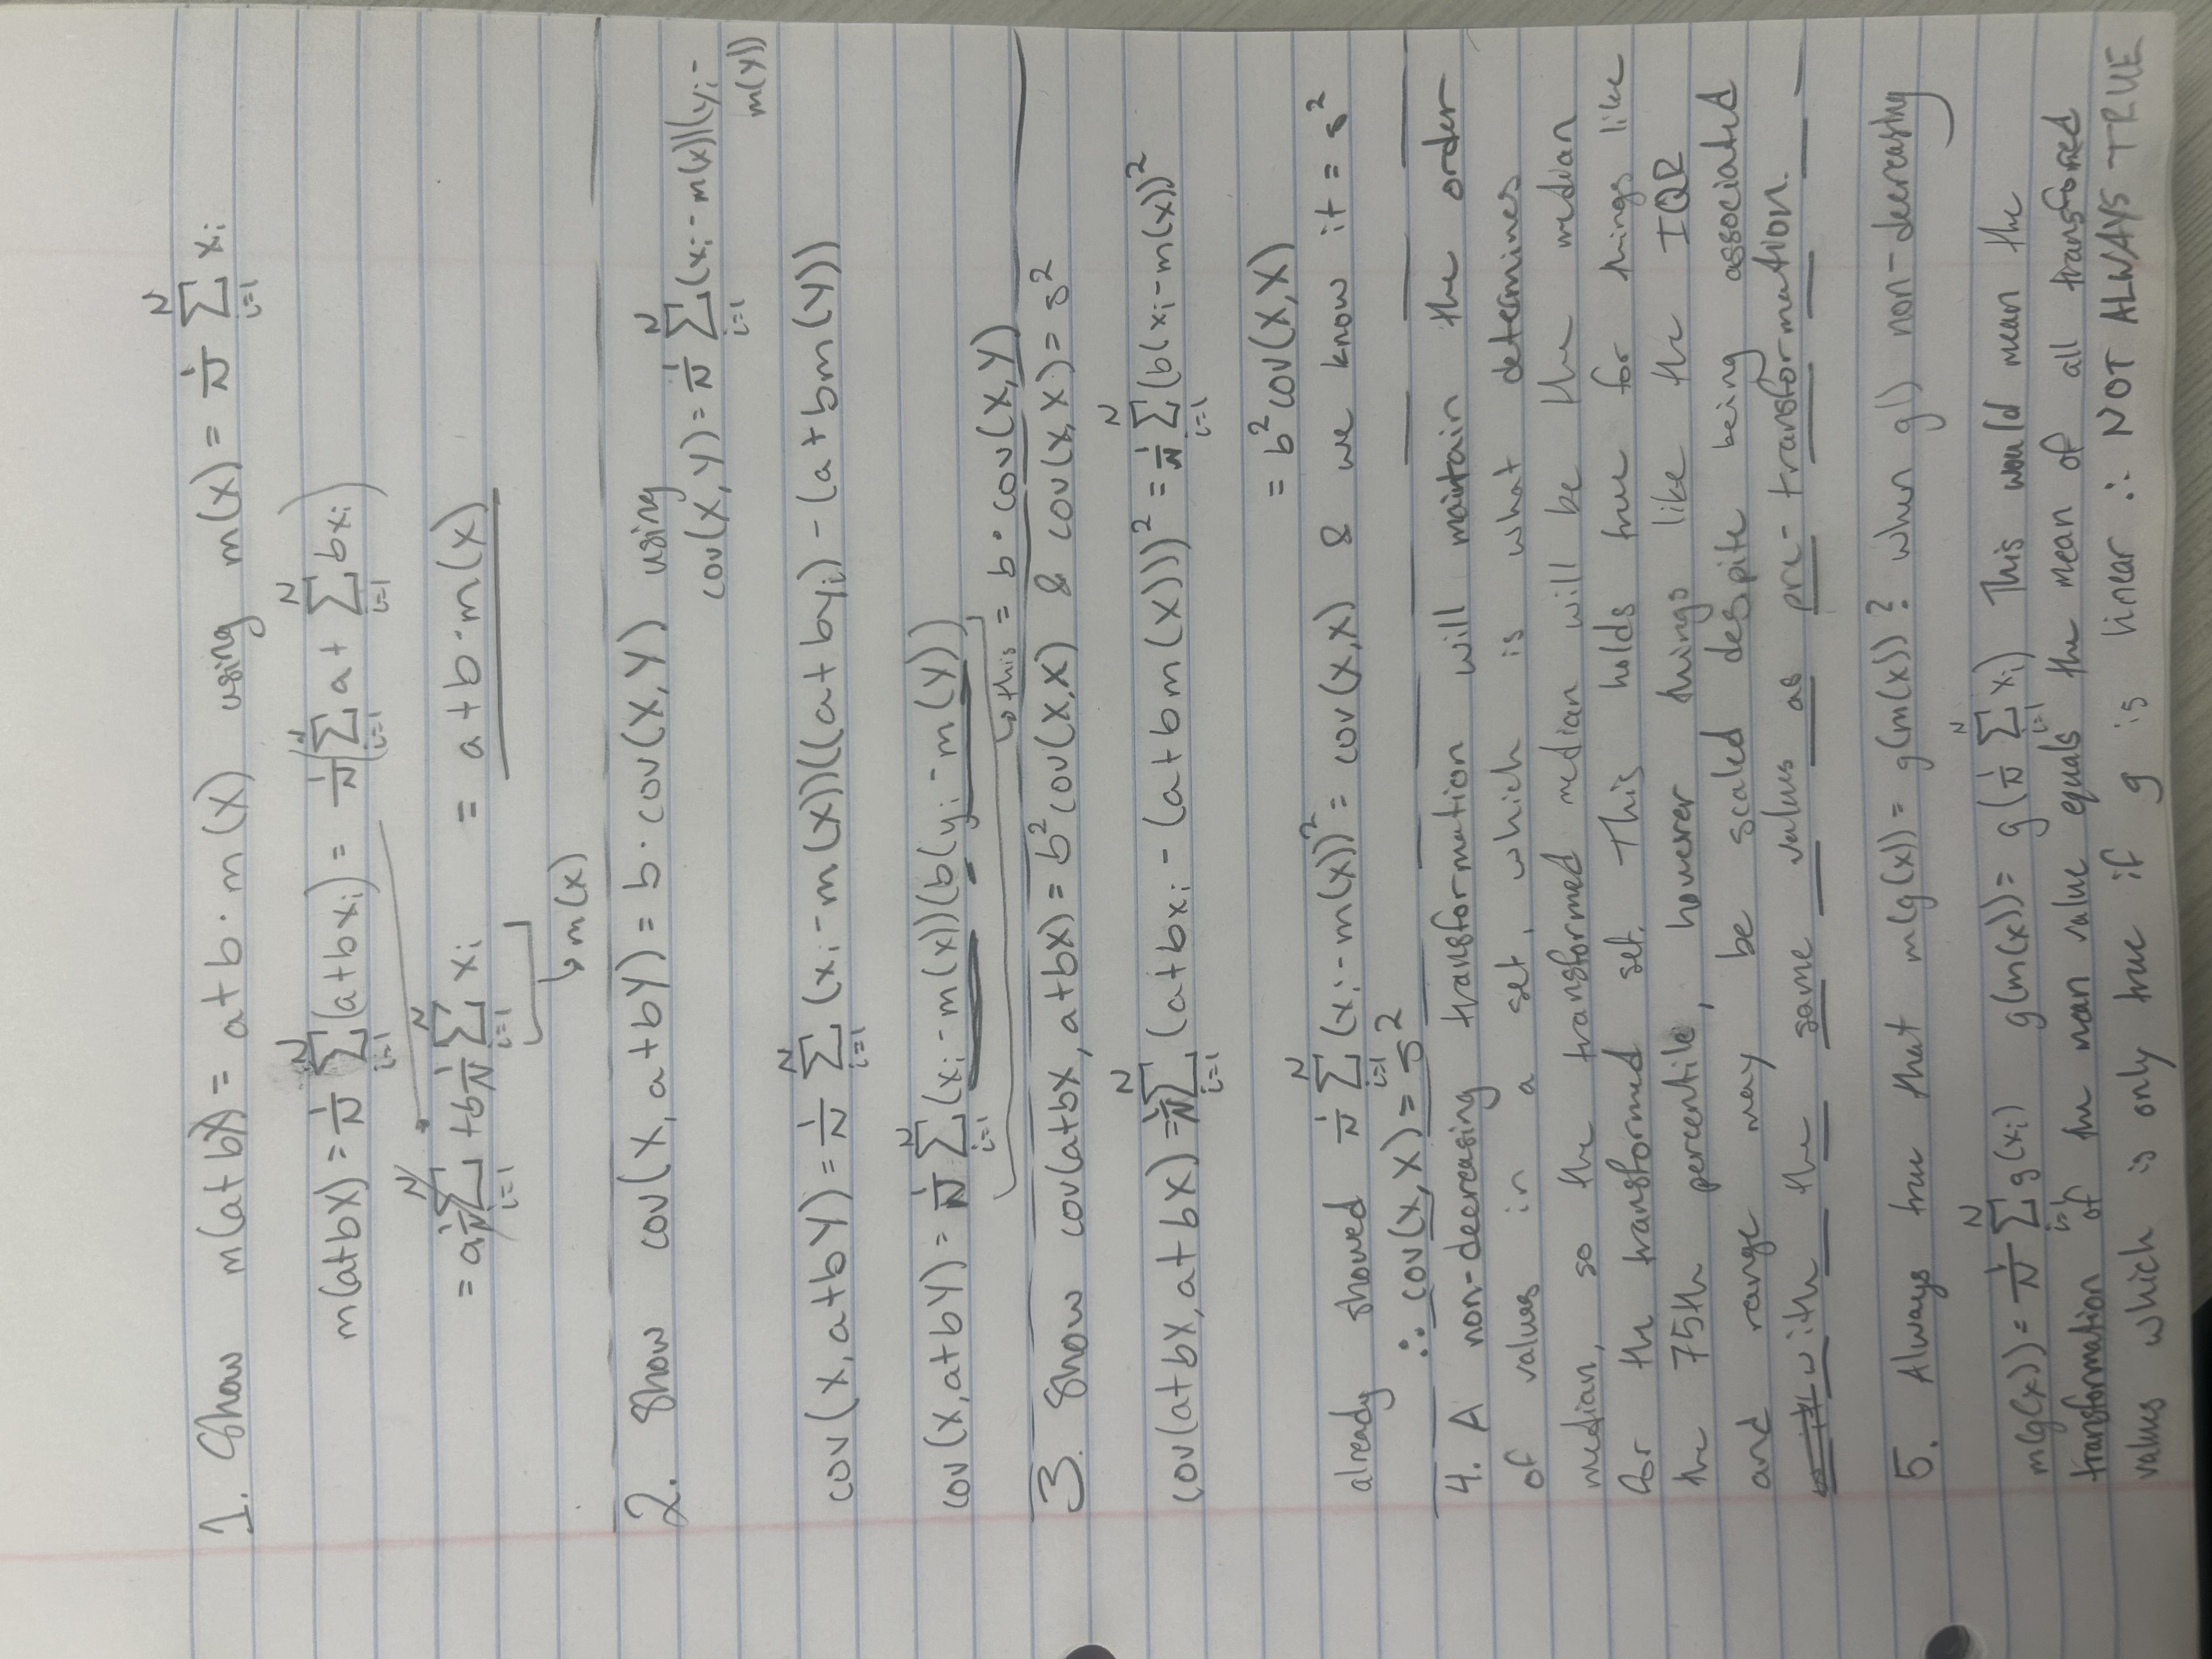 1. Show m(a+bX) = a+b·m(X) using m(x) = 1/N Σ_{i=1}^{N} x_i
m(a+bX) = 1/N Σ_{i=1}^{N} (a+bx_i) = 1/N (Σ_{i=1}^{N} a + Σ_{i=1}^{N} bx_i)
= a 1/N Σ_{i=1}^{N} + b 1/N Σ_{i=1}^{N} x_i = a+b·m(x)
↳ m(x)
2. Show cov(X, a+bY) = b·cov(X,Y) using
cov(X,Y) = 1/N Σ_{i=1}^{N} (x_i - m(x))(y_i -
m(y))
cov(X, a+bY) = 1/N Σ_{i=1}^{N} (x_i - m(x))((a+by_i) - (a+bm(Y))
cov(X, a+bY) = 1/N Σ_{i=1}^{N} (x_i - m(x))(b(y_i - m(Y))
↳ this = b·cov(X,Y)
3. Show cov(a+bX, a+bX) = b² cov(X,X) & cov(X,X) = s²
cov(a+bX, a+bX) = 1/N Σ_{i=1}^{N} (a+bx_i - (a+bm(X)))² = 1/N Σ_{i=1}^{N} (b(x_i - m(x))²
= b² cov(X,X)
already showed 1/N Σ_{i=1}^{N} (x_i - m(x))² = cov(X,X) & we know it = s²
∴ cov(X,X) = s²
4. A non-decreasing transformation will maintain the order
of values in a set, which is what determines
median, so the transformed median will be the median
for the transformed set. This holds true for things like
the 75th percentile, however things like the IQR
and range may be scaled despite being associated
with the same values as pre-transformation.
5. Always true that m(g(x)) = g(m(x))? when g() non-decreasing
m(g(x)) = 1/N Σ_{i=1}^{N} g(x_i) g(m(x)) = g(1/N Σ_{i=1}^{N} x_i) This would mean the
transformation of the mean value equals the mean of all transformed
values which is only true if g is linear ∴ NOT ALWAYS TRUE